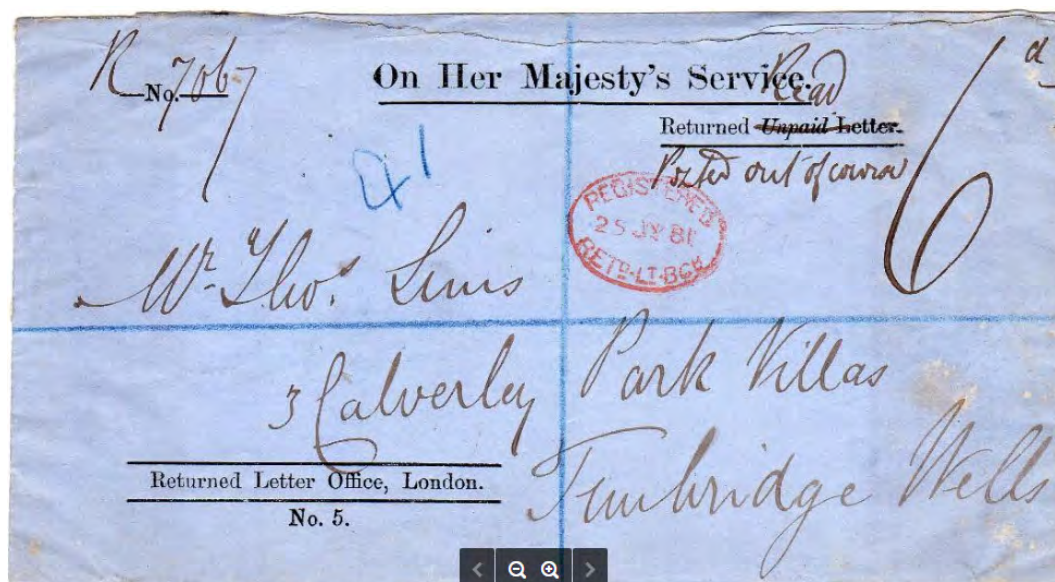 R No. 7067
On Her Majesty's Service.
6d
Regd
Returned Unpaid Letter.
Posted out of course
41
REGISTERED
25 JY 81
RETD. LT. BCH
Mr. Thos.
3 Calverley Park Villas
Tunbridge Wells
Returned Letter Office, London.
No. 5.